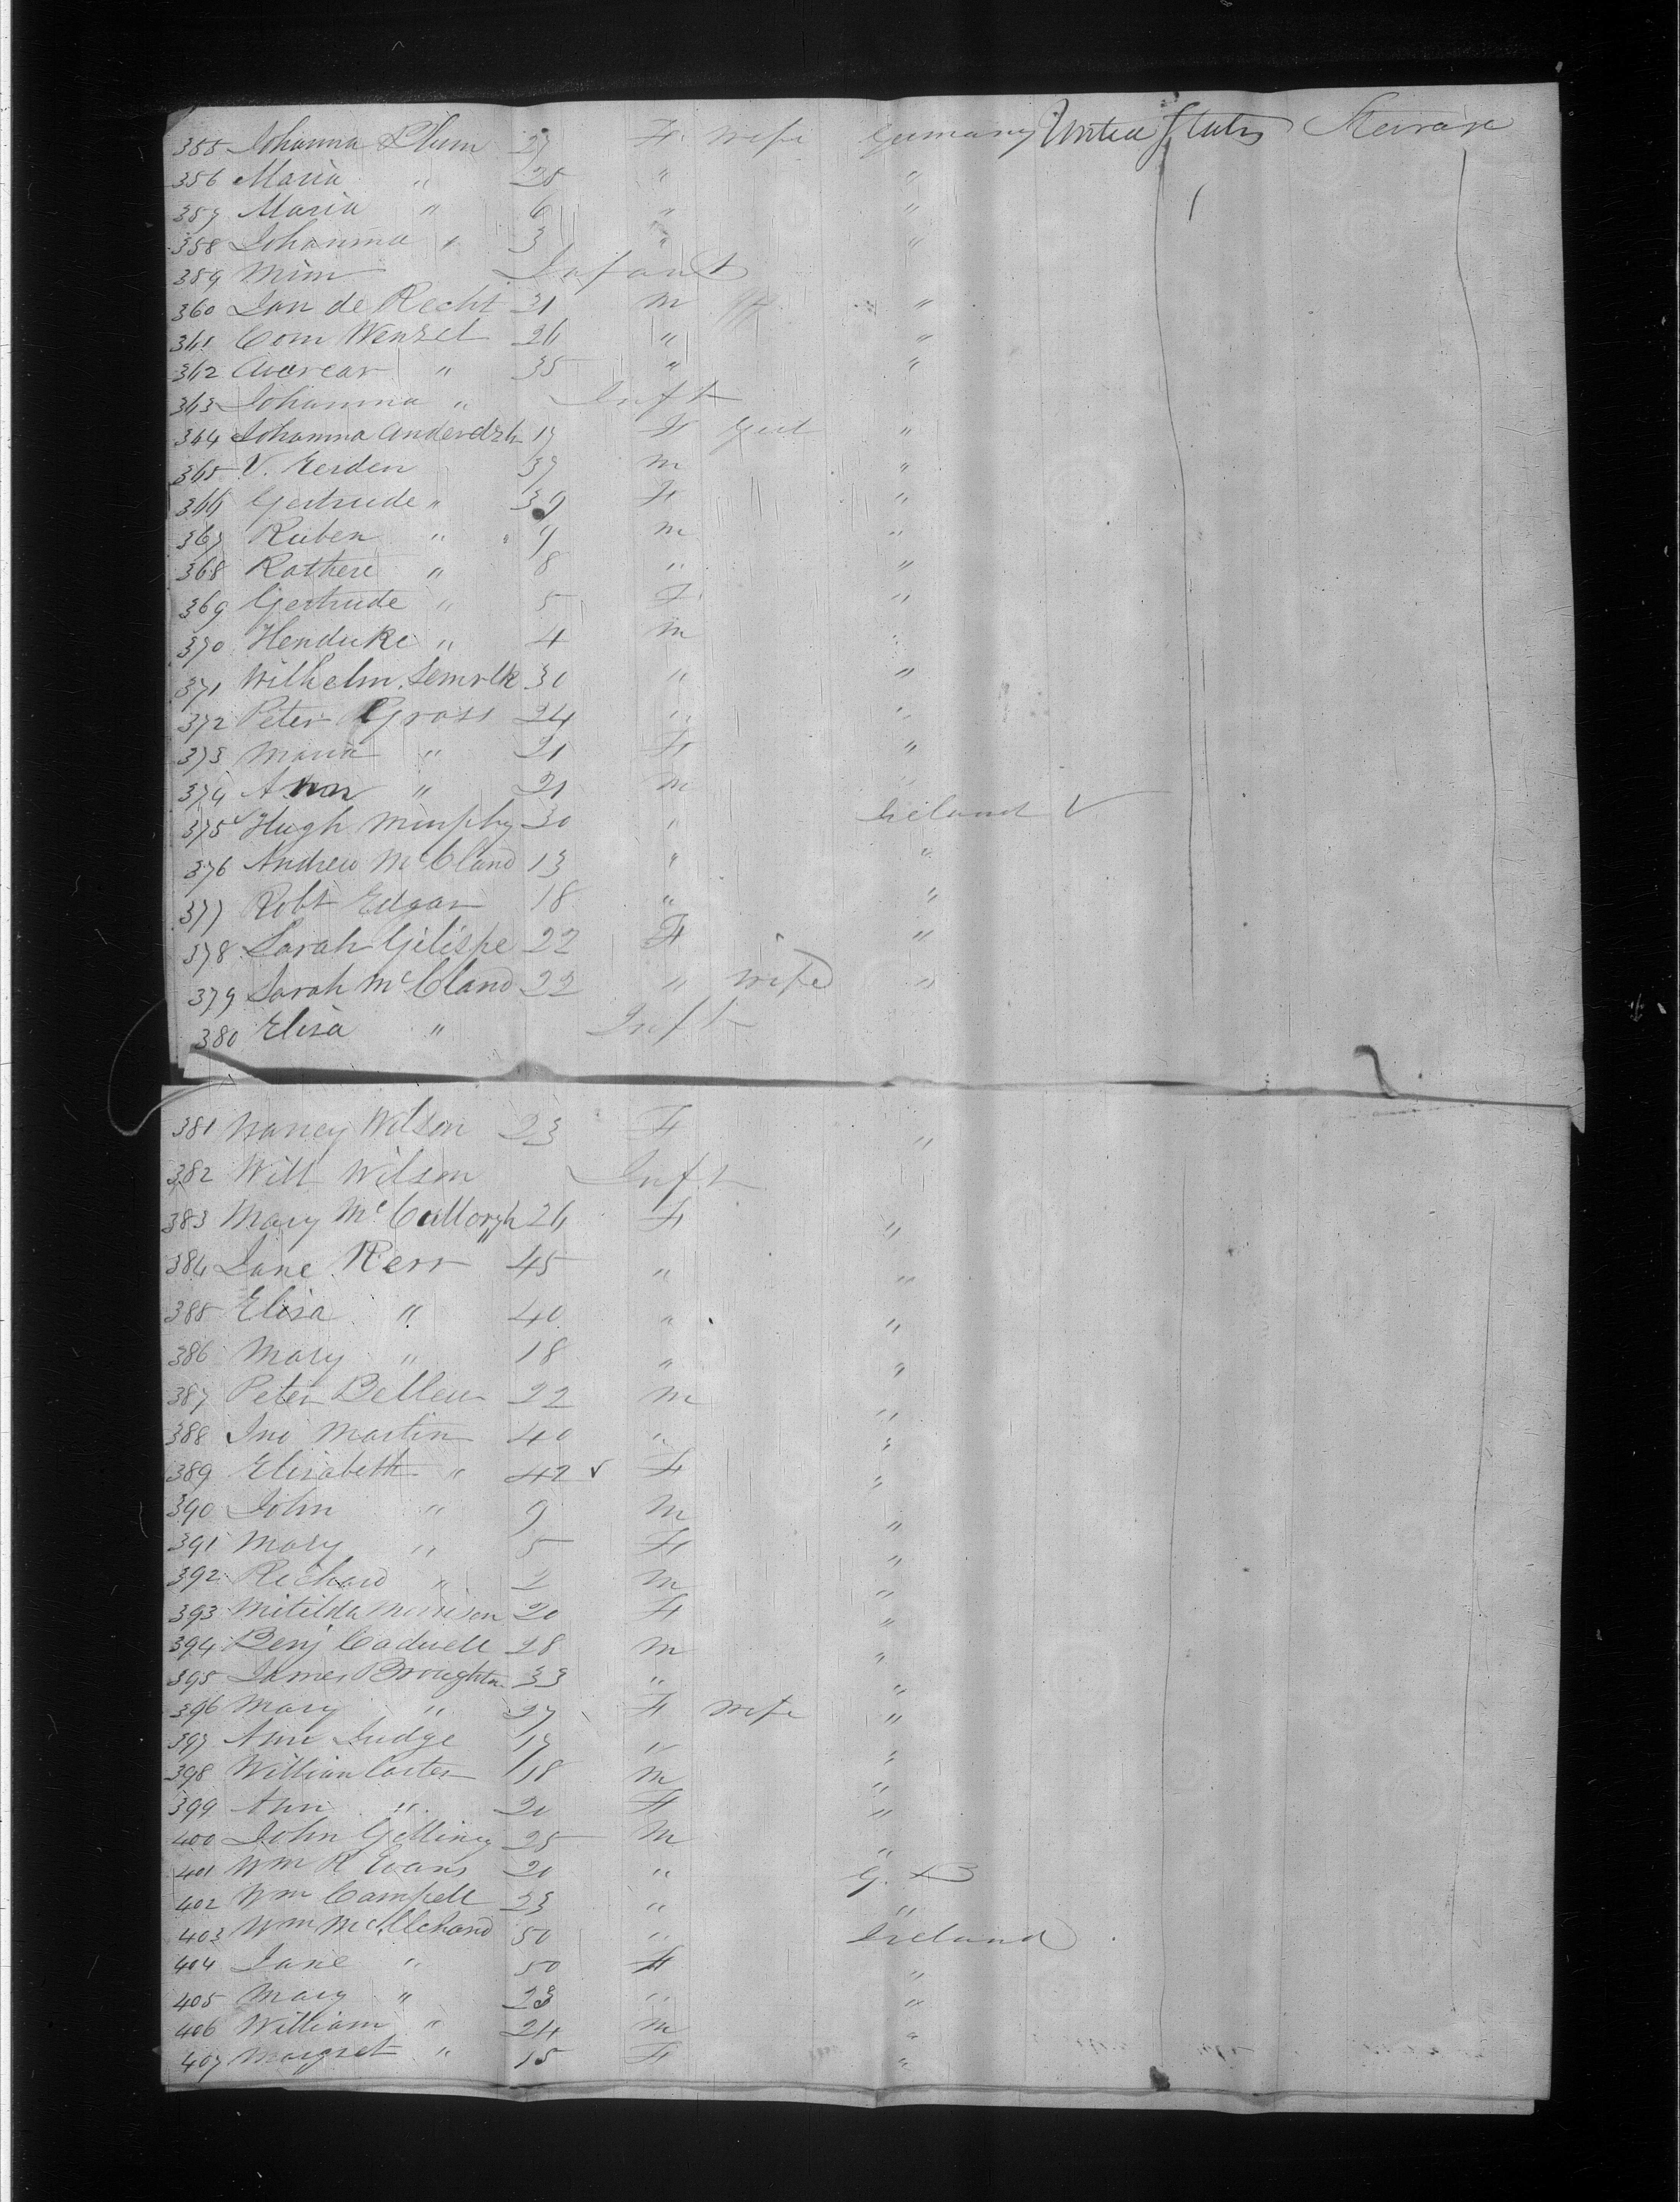 355 Johanna Blum 27 F. Wife Germany United States Steerage
356 Maria " 28 " "
357 Maria " 6 " "
358 Johanna " 3 " "
359 Mim Infant
360 Jan de Recht 31 M "
361 Corn Wenzel 26 " "
362 " 35 " "
363 Johanna " Inft
364 Johanna 17 F "
365 V. Eerden 37 M "
366 Gertrude " 39 F "
367 Ruben " 9 M "
368 " 8 " "
369 Gertrude " 5 F "
370 Henduke " 4 M "
371 Wilhelm 30 " "
372 Peter Gross 24 " "
373 Maria " 21 F "
374 Ann " 21 M "
375 Hugh Murphy 30 " Ireland
376 Andrew McCland 13 " "
377 Robt Edgar 18 " "
378 Sarah Gilispe 22 F "
379 Sarah McCland 22 " Wife "
380 Elisa " Inft
381 Nancy Wilson 23 F "
382 Will Wilson Inft
383 Mary McCullorgh 26 F "
384 Jane Kerr 45 " "
385 Elisa " 40 " "
386 Mary " 18 " "
387 Peter Bellew 22 M "
388 Jno Martin 40 " "
389 Elisabeth " 42 F "
390 John " 9 M "
391 Mary " 5 F "
392 Richard " 2 M "
393 Mitilda Morrison 20 F "
394 Benj Cadwell 28 M "
395 James Broughton 33 " "
396 Mary " 27 F Wife "
397 Ann Judge 17 " "
398 William Carter 18 M "
399 Ann " 20 F "
400 John 25 M "
401 Wm R Evans 20 " G. B
402 Wm Campell 23 " "
403 Wm 50 " Ireland
404 Jane " 50 F "
405 Mary " 23 " "
406 William " 24 M "
407 Margret " 15 F "